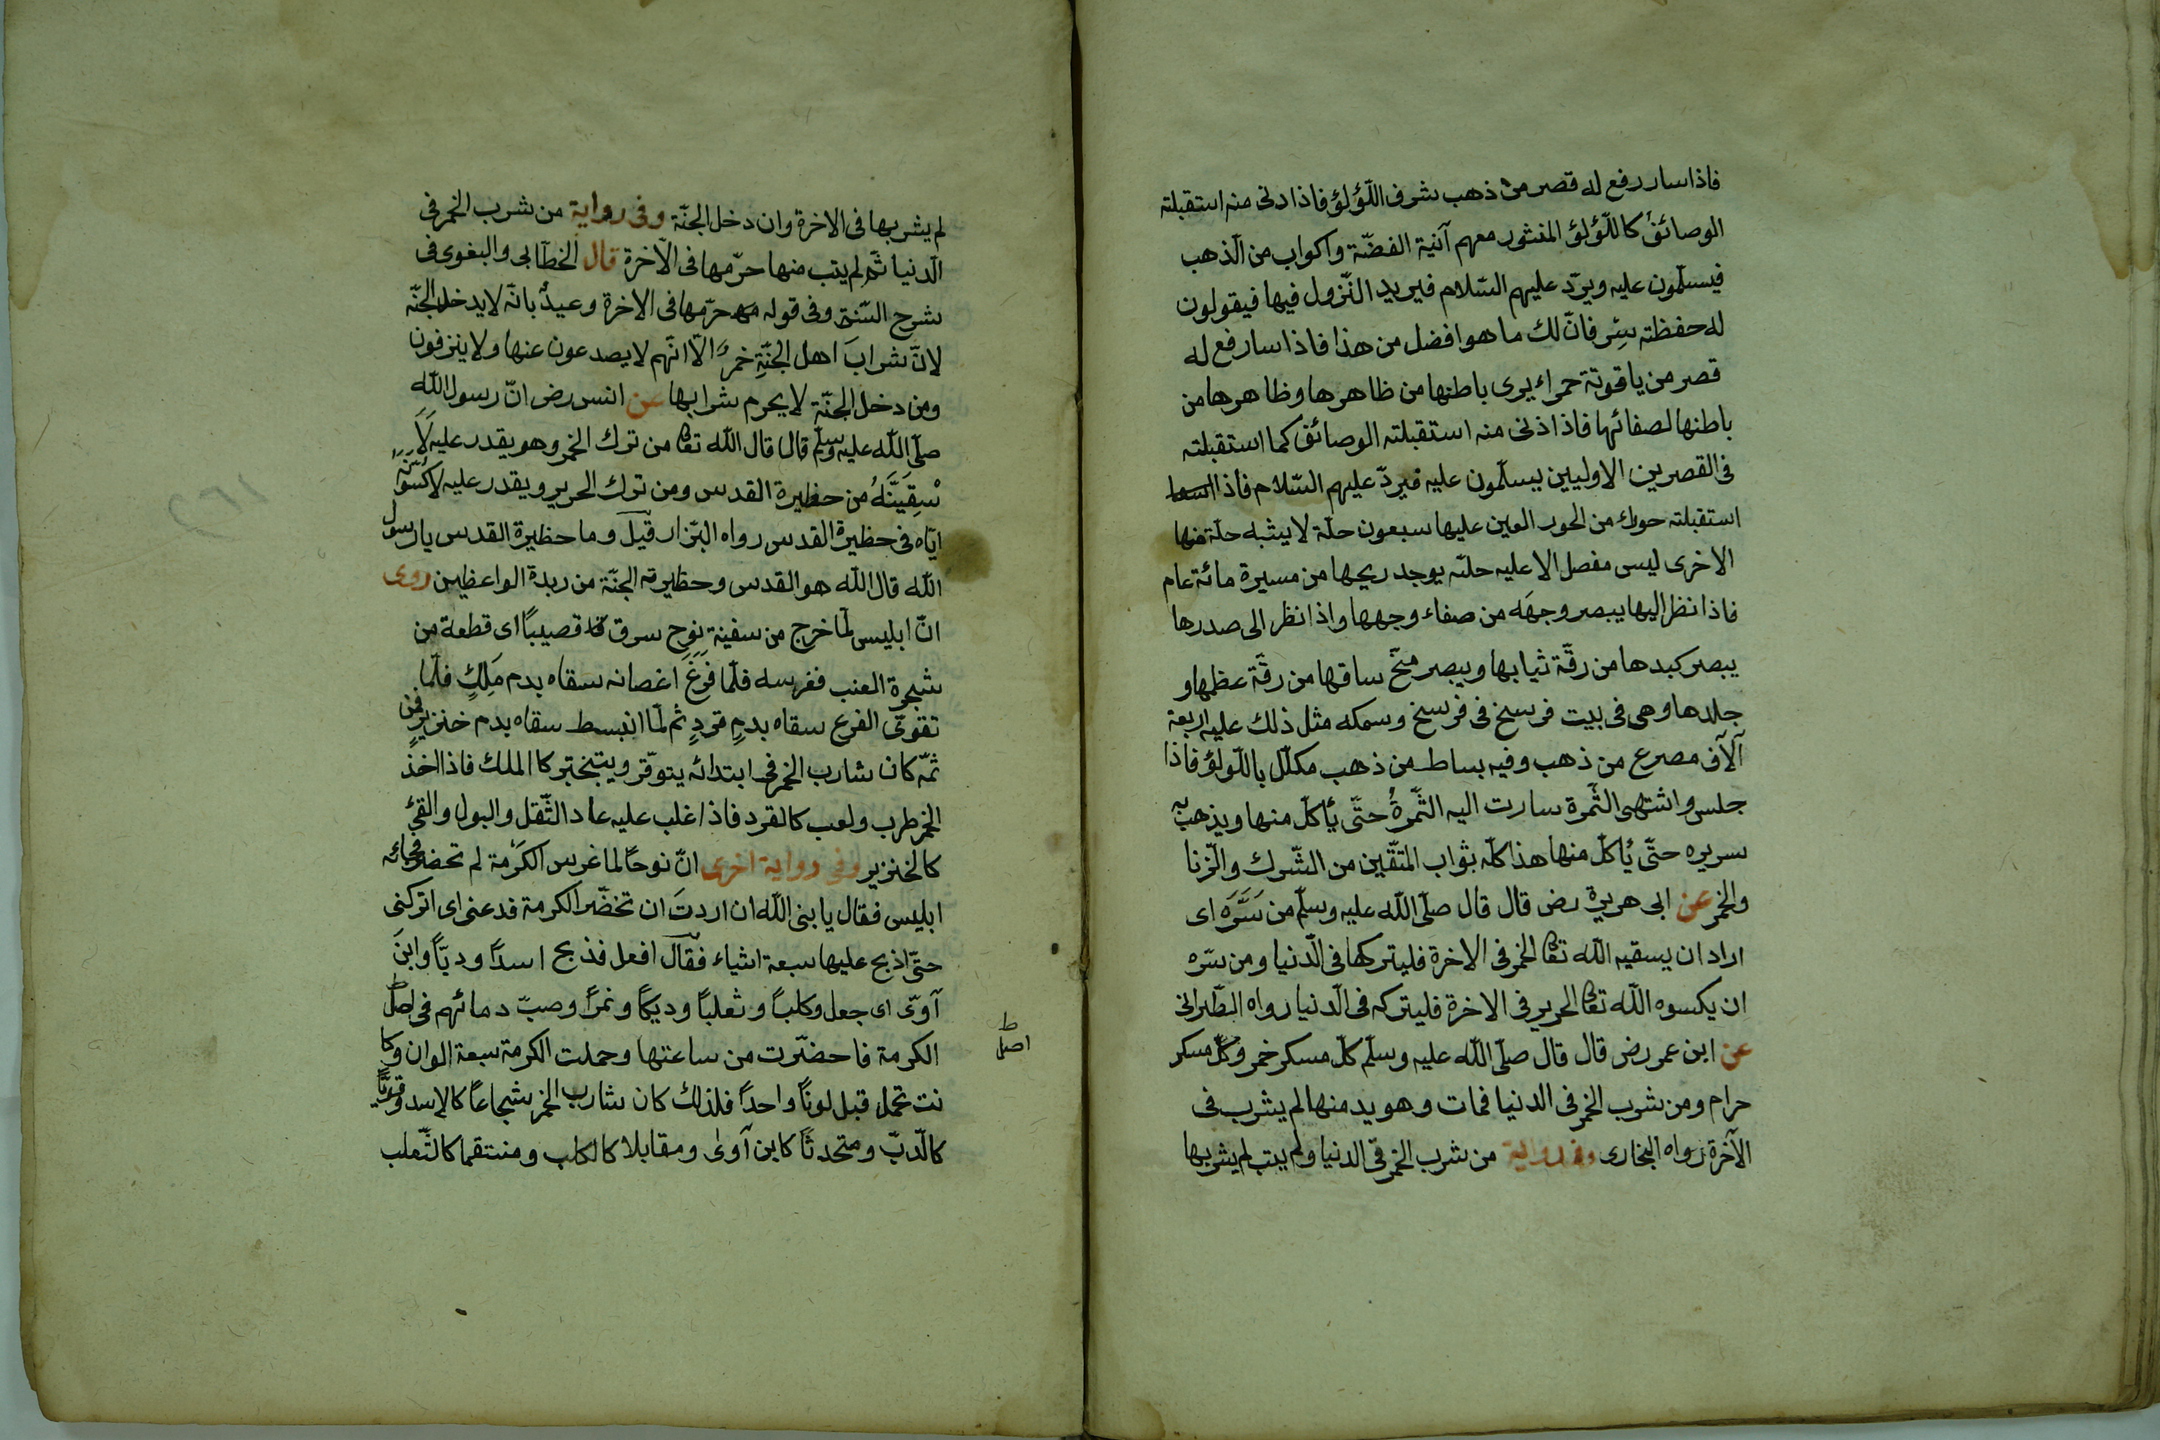 فاذا سار رفع له قصر من ذهب شرف اللّؤلؤ فاذا دنى منه استقبلته
الوصائف كاللّؤلؤ المنثور معهم آنية الفضّة واكواب من الذهب
فيسلّمون عليه ويردّ عليهم السّلام فيريد النّزول فيها فيقولون
له حفظته سِر فانّ لك ما هو افضل من هذا فاذا سار رفع له
قصر من ياقوتة حمراء يرى باطنها من ظاهرها وظاهرها من
باطنها لصفائها فاذا ذنى منه استقبلته الوصائف كما استقبلته
فى القصرين الاوليين يسلّمون عليه فيردّ عليهم السّلام فاذا
استقبلته حوراء من الحور العين عليها سبعون حلّة لا يشبه حلّة منها
الاخرى ليس مفصل الا عليه حلّته يوجد ريحها من مسيرة مائة عام
فاذا نظر اليها يبصر وجهَه من صفاء وجهها واذا نظر الى صدرها
يبصر كبدها من رقّة ثيابها ويبصر مخّ ساقها من رقّة عظمها و
جلدها وهى فى بيت فرسخ فى فرسخ وسمكه مثل ذلك عليه اربعة
آلآف مصرع من ذهب وفيه بساط من ذهب مكلّل باللّولؤ فاذا
جلس واشتهى الثّمرة سارت اليه الثّمرةُ حتّى يأكل منها ويذهب به
سريره حتّى يُاكل منها هذا كلّه بثواب المتّقين من الشّرك والّزنا
والخمر عن ابى هريرة رض قال قال صلّى اللّه عليه وسلّم من سَرَّه اى
اراد ان يسقيه اللّه تعا الخمر فى الاخرة فليتركها فى الّدنيا ومن سّره
ان يكسوه اللّه تعا الحرير فى الاخرة فليتركه فى الّدنيا رواه الطّبرانى
عن ابن عمر رض قال قال صلّى اللّه عليه وسلّم كلّ مسكر خمر وكلّ مسكر
حرام ومن شرب الخمر فى الدنيا فمات وهو يدمنها لم يشرب فى
الآخرة رواه البخارى وفى رواية من شرب الخمر فى الدنيا ولم يتب لم يشربها
لم يشربها فى الاخرة وان دخل الجنّة وفى رواية من شرب الخمر فى
الّدنيا ثّم لم يتب منها حرّمها فى الآخرة قال الخطّابى والبغوى فى
شرح السّنة وفى قوله حرّمها فى الاخرة وعيدٌ بانّه لا يدخل الجنّة
لانّ شرابَ اهل الجنّةِ خمرٌ الّا انّهم لا يصدعون عنها ولا ينزفون
ومن دخل الجنّة لا يحرم شرابها عن انس رض انّ رسول اللّه
صلّى اللّه عليه وسلّم قال قال اللّه تعا من ترك الخمر وهو يقدر عليه لَاَ
سْقِيَنَّهُ من حظيرة القدس ومن ترك الحرير ويقدر عليه لاكسُوَنَّهُ
ايّاه فى حظيرة القدس رواه البّزار قيل وما حظيرة القدس يا رسول
اللّه قال اللّه هو القدس وحظيرته الجنّة من زبدة الواعظين روى
انّ ابليس لّما خرج من سفينة نوح سرق قصيبًا اى قطعة من
شجرة العنب فغرسه فلّما فَرَّغَ اغصانه سقاه بدم مَلِكٍ فلّما
تقوّى الفرع سقاه بدمِ قردٍ ثم لّما انبسط سقاه بدم خنزيرٍ فمن
ثمّه كان شارب الخمر فى ابتدائه يتوقّر ويتبختر كا الملك فاذا اخذ
الخمر طرب ولعب كالقرد فاذا غلب عليه عاد الثّقل والبول والقئ
كالخنزير وفى رواية اخرى انّ نوحًا لما غرس الكَرْمة لم تحضر فجائه
ابليس فقال يا بنى اللّه ان اردتَ ان تخضّر الكرمة فدعنى اى اتركنى
حتّى اذبح عليها سبعة اشياء فقال افعل فذبح اسدًا ودبّاً وابنَ
آوىّ اى جعل وكلباً وثعلبًا وديكًا ونمرًا وصبّ دمائهم فى اصل
الكرمة فاحضرّت من ساعتها وحملت الكرمة سبعة الوان وكا
نت تحمل قبل لونًا واحدًا فلذلك كان شارب الخمر شجاعًا كالاسد وقويًّا
كالّدبّ ومتحدثًا كابن آوىٰ ومقابلا كالكلب ومنتقما كالثّعلب
ط
اصل